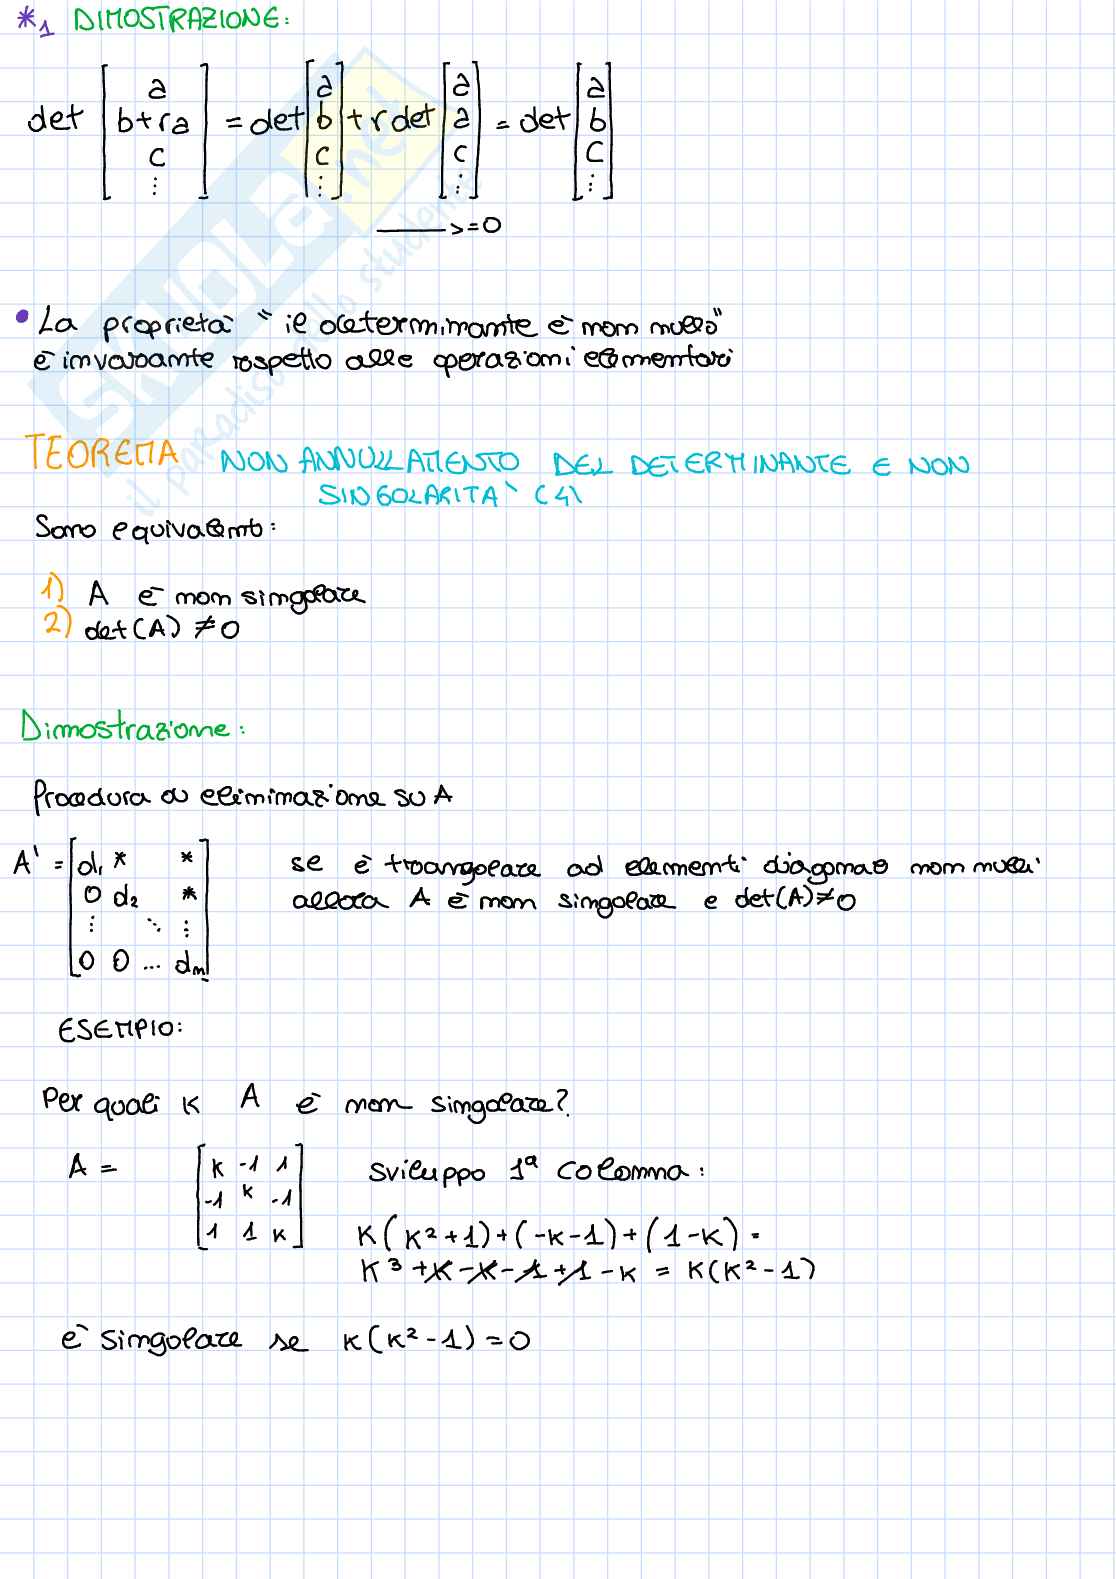 *1 DIMOSTRAZIONE:
det [a b+ra c ⋮] = det [a b c ⋮] + r det [a a c ⋮] = det [a b C ⋮]
——> = 0
• La proprietà " il determinante è non nullo"
è invariante rispetto alle operazioni elementari
TEOREMA NON ANNULLAMENTO DEL DETERMINANTE E NON
SINGOLARITA' (4)
Sono equivalenti:
1) A è non singolare
2) det(A) ≠ 0
Dimostrazione:
Procedura di eliminazione su A
A' = [d₁ * * 0 d₂ * ⋮ ⋱ ⋮ 0 0 ... dₙ]
se è triangolare ad elementi diagonali non nulli
allora A è non singolare e det(A)≠0
ESEMPIO:
Per quali K A è non singolare?
A = [K -1 1 -1 K -1 1 1 K]
Sviluppo 1ª colonna:
K(K²+1)+(-K-1)+(1-K) =
K³ +K -K -1 +1 -K = K(K²-1)
è singolare se K(K²-1)=0
SKUOLA.net
il paradiso dello studente